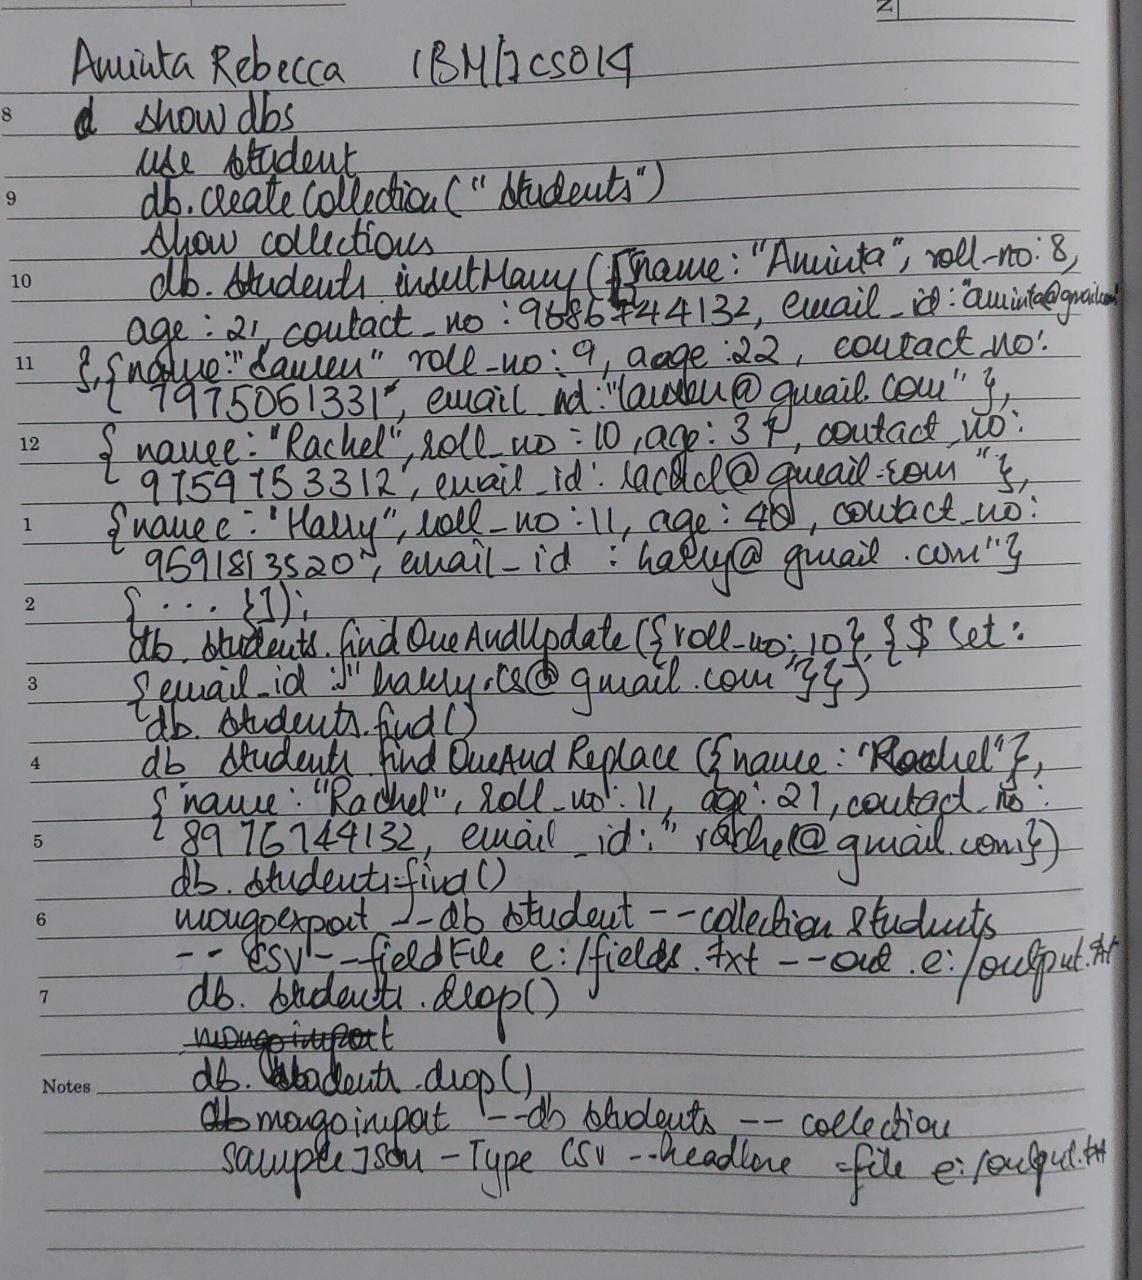 Aminta Rebecca 1BM17CS014
8 show dbs
use student
9 db.createCollection("Students")
show collections
10 db. Students insertMany ([{name: "Aminta", roll-no: 8,
age : 21, contact_no : 9686744132, email_id : "aminta@gmail.com
11 }, {name: "Lauren" roll-no: 9, aage : 22, contact_no:
7975061331", email_id: "lauren@gmail.com" },
12 { namee: "Rachel", roll_no = 10, age: 37, contact_no:
9759753312', email_id: rachel@gmail.com "},
1 {namee: "Harry", roll_no: 11, age: 40, contact_no:
9591813520", email_id : harry@gmail.com"}
2 { .... }]);
db. students. findOneAndUpdate ({roll-no: 10}, {$ set:
3 {email_id :" harry.cs@gmail.com "}})
db. Students. find()
4 db students find OneAnd Replace ({name: "Rachel"},
{ name: "Rachel", roll_no: 11, age: 21, contact_no:
5 8976744132, email_id: " rachel@gmail.com})
db. students.find()
6 mongoexport --db student --collection students
-- csv --fieldFile e:/fields.txt --out .e:/output.txt
7 db. Students.drop()
mongoimport
Notes db. students.drop()
mongoimport --db students -- collection
sampleJson -Type CSV --headline -file e:/output.txt